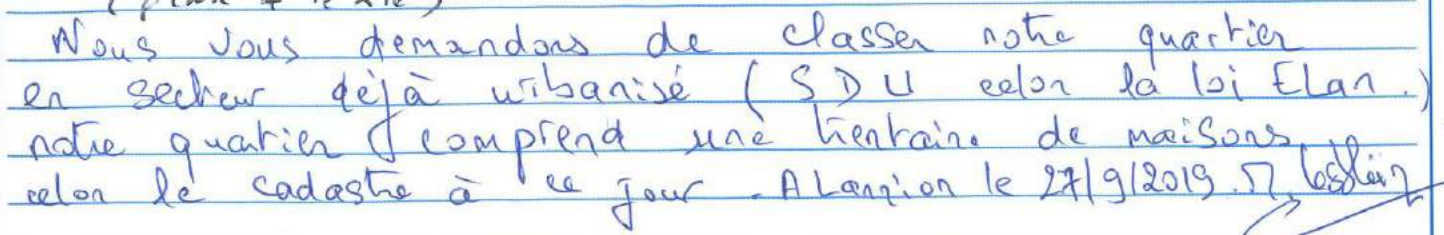 Nous vous demandons de classer notre quartier
en secteur déjà urbanisé ( SDU celon la loi Elan.)
notre quartier comprend une trentaine de maisons
celon le cadastre à ce jour. A Lannion le 27/9/2019.